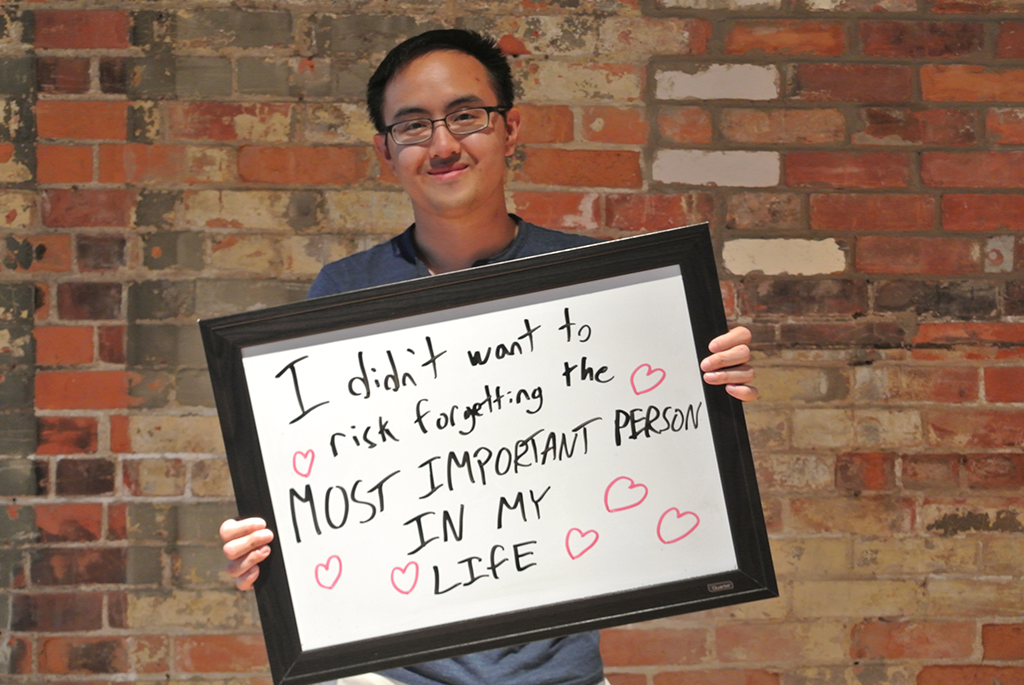 I didn't want to
risk forgetting the
MOST IMPORTANT PERSON
IN MY
LIFE
Quartet